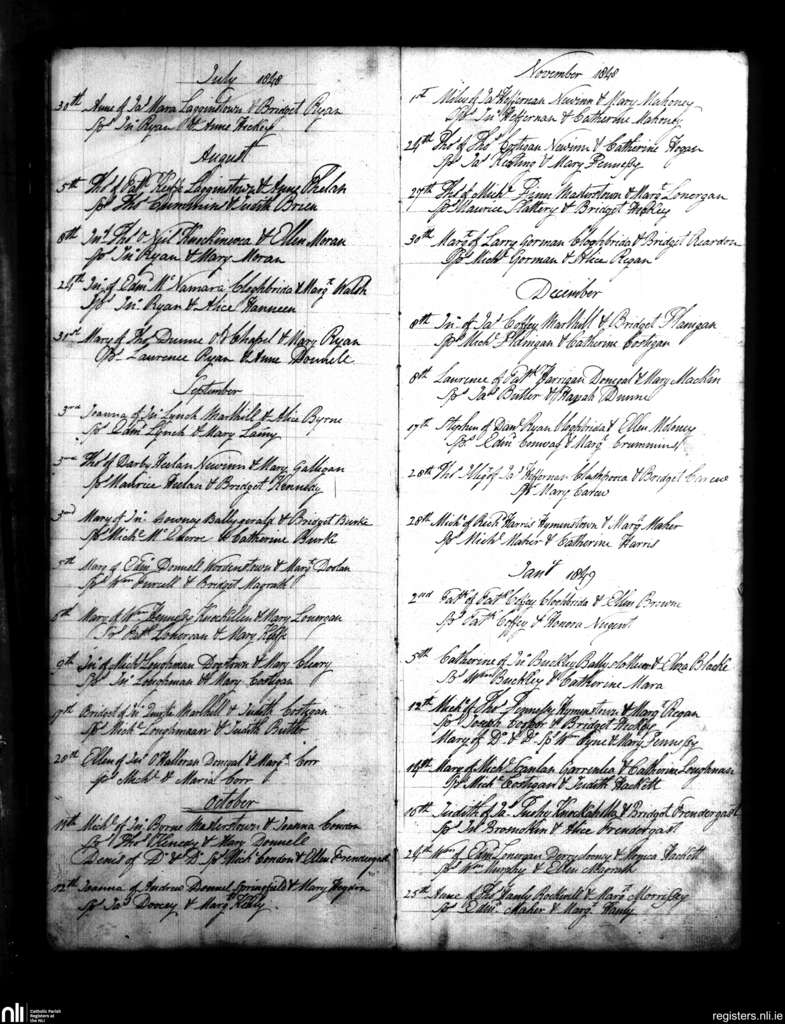 July 1848
30th Anne of Jas Mara Lagginstown & Bridget Ryan
Sps Jno Ryan & Anne Hickey
August
5th Thos of Patk Keefe Lagginstown & Anne Phelan
Sps Thos Cummins & Judith Brien
8th Jno Thos O Neil Knockinerea & Ellen Moran
Sps Jno Ryan & Mary Moran
24th Jno of Edmd Mc Namara Cloghbrida & Margt Walsh
Sps Jno Ryan & Alice Hanneen
30st Mary of Thos Dunne Old Chapel & Mary Ryan
Sps Laurence Ryan & Anne Donnele
September
3rd Joanna of Jno Lynch Marlhill & Alice Byrne
Sps Edmd Lynch & Mary
3rd Thos of Darby Heelan Newinn & Mary Galligan
Sps Maurice Heelan & Bridget Kennedy
3rd Mary of Jno Ballygerald & Bridget Burke
Sps Michl Mc & Catherine Burke
5th Mary of Edmd Donnell Woodenstown & Margt Doolan
Sps Wm Purcell & Bridget Magrath
6th Mary of Wm Hennessy Knockillen & Mary Lonergan
Sps Patk Lonergan & Mary Keefe
9th Jno of Michl Loughman Dogstown & Mary Cleary
Sps Jno Loughman & Mary Costigan
17th Bridget of Jno Marlhill & Judith Costigan
Sps Michl Loughmaan & Judith Butler
20th Ellen of Jno O Halleran Donegal & Margt Corr
Sps Michl & Maria Corr
October
11th Michl of Jno Byrne Mastertown & Joanna Condon
Sps Thos Clencey & Mary Donnell
Denis of Do & Do Sps Michl Condon & Ellen Prendergast
12th Joanna of Andrew Donnel Springfield & Mary
Sps Jas Doocey & Margt Kelly
November 1848
1st Miley of Jas Heffernan Newinn & Mary Mahoney
Sps Jno Heffernan & Catherine Mahoney
24th Thos of Thos Costigan Newinn & Catherine Hogan
Sps Jas Keating & Mary Fennessy
27th Thos of Michl Finn Mastertown & Margt Lonergan
Sps Maurice Slattery & Bridget Hickey
30th Margt of Larry Gorman Cloghbrida & Bridget Reardon
Sps Michl Gorman & Alice Regan
December
8th Jno of Jas Coffey Marlhill & Bridget Flanigan
Sps Michl Flanigan & Catherine Costigan
8th Laurence of Patk Harrigan Donegal & Mary Macklin
Sps Jas Butler & Hanah Dunne
17th Stephen of Danl Ryan Cloghbrida & Ellen Moloney
Sps Edmd Conway & Margt Crummins
28th Thos of Jas Heffernan & Bridget Carew
Sps Mary Carew
28th Michl of Richd Harris Hymenstown & Margt Maher
Sps Michl Maher & Catherine Harris
Jany 1849
2nd Patk of Patk Coffey Cloghbrida & Ellen Browne
Sps Patk Coffey & Honora Nugent
5th Catherine of Jno Buckley Ballyslatteen & Eliza Blacke
Sps Wm Buckley & Catherine Mara
12th Michl of Thos Fennessy Hymenstown & Margt Regan
Sps Joseph Cooper & Bridget Hickey
Mary of Do & Do Sps Wm Byrne & Mary Fennessy
14th Mary of Michl Scanlan Garrenlea & Catherine Loughman
Sps Michl Costigan & Judith Hackett
16th Judith of Jas Tuohy Knockahilla & Bridget Prendergast
Sps Jno Brosnahan & Alice Prendergast
24th Wm of Edmd Lonergan & Honora Hackett
Sps Wm Murphy & Ellen Magrath
25th Anne of Thos Hanly Rockwell & Margt Morrissey
Sps Edmd Maher & Margt Hanly
nli
Catholic Parish
Registers at
the NLI
registers.nli.ie